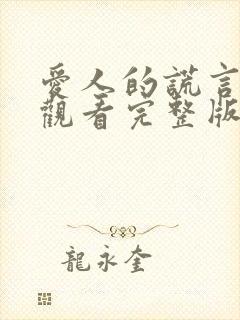 愛人的謊言
觀看完整版
龍永奎